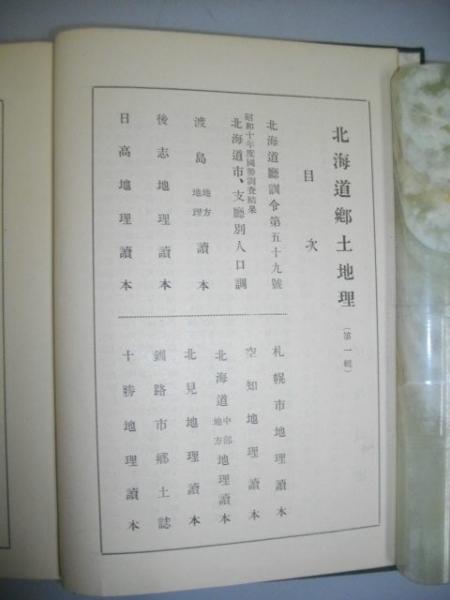 北海道鄕土地理(第一輯)
目次
北海道廳訓令第五十九號
昭和十年度國勢調査結果
北海道市、支廳別人口調
渡島地方地理讀本
後志地理讀本
日高地理讀本
札幌市地理讀本
空知地理讀本
北海道中部地方地理讀本
北見地理讀本
釧路市鄕土誌
十勝地理讀本